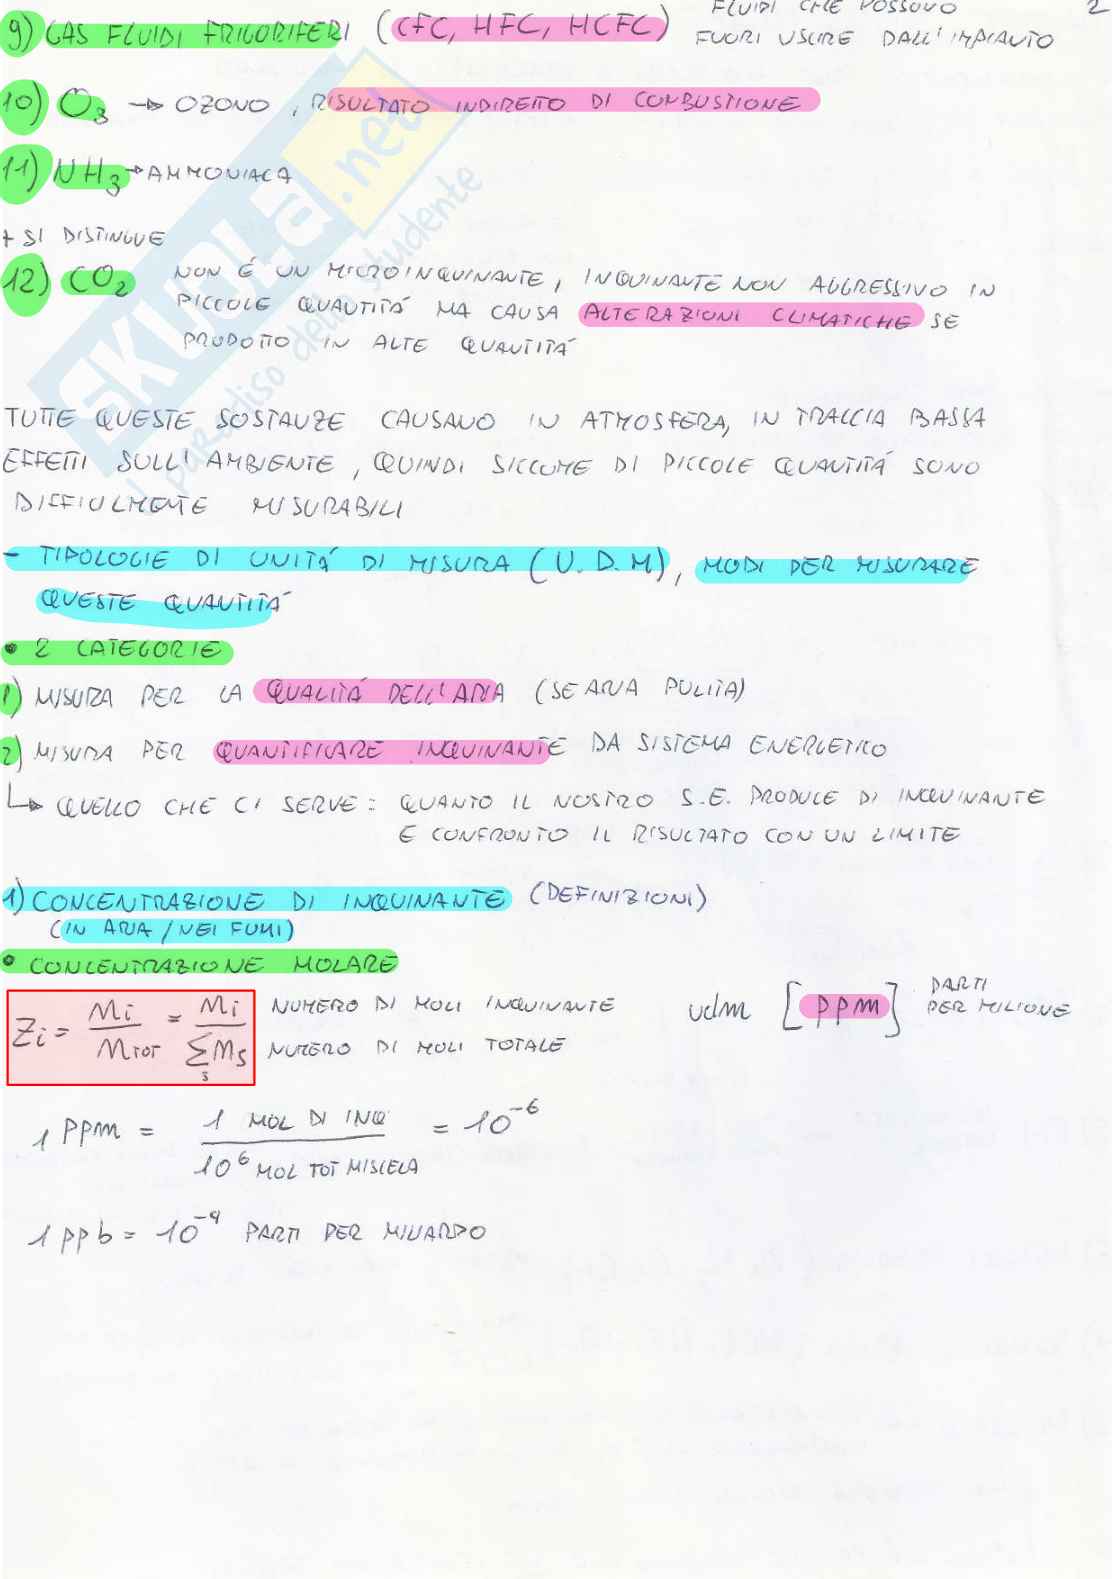 FLUIDI CHE POSSONO 2
9) GAS FLUIDI FRIGORIFERI (CFC, HFC, HCFC) FUORI USCIRE DALL'IMPIANTO
10) O3 → OZONO, RISULTATO INDIRETTO DI COMBUSTIONE
11) NH3 → AMMONIACA
+ SI DISTINGUE
12) CO2 NON É UN MICROINQUINANTE, INQUINANTE NON AGGRESSIVO IN
PICCOLE QUANTITÁ MA CAUSA ALTERAZIONI CLIMATICHE SE
PRODOTTO IN ALTE QUANTITÁ
TUTTE QUESTE SOSTANZE CAUSANO IN ATMOSFERA, IN TRACCIA BASSA
EFFETTI SULL'AMBIENTE, QUINDI SICCOME DI PICCOLE QUANTITÁ SONO
DIFFICILMENTE MISURABILI
- TIPOLOGIE DI UNITÁ DI MISURA (U.D.M), MODI PER MISURARE
QUESTE QUANTITÁ
• 2 CATEGORIE
1) MISURA PER LA QUALITÁ DELL'ARIA (SE ARIA PULITA)
2) MISURA PER QUANTIFICARE INQUINANTE DA SISTEMA ENERGETICO
↳ QUELLO CHE CI SERVE: QUANTO IL NOSTRO S.E. PRODUCE DI INQUINANTE
E CONFRONTO IL RISULTATO CON UN LIMITE
1) CONCENTRAZIONE DI INQUINANTE (DEFINIZIONI)
(IN ARIA / NEI FUMI)
• CONCENTRAZIONE MOLARE
Zi = Mi / MTOT = Mi / ΣMs s NUMERO DI MOLI INQUINANTE udm [ppm] PARTI PER MILIONE
NUMERO DI MOLI TOTALE
1 ppm = 1 MOL DI INQ / 10^6 MOL TOT MISCELA = 10^-6
1 ppb = 10^-9 PARTI PER MILIARDO
SKUOLA.net
il paradiso dello studente